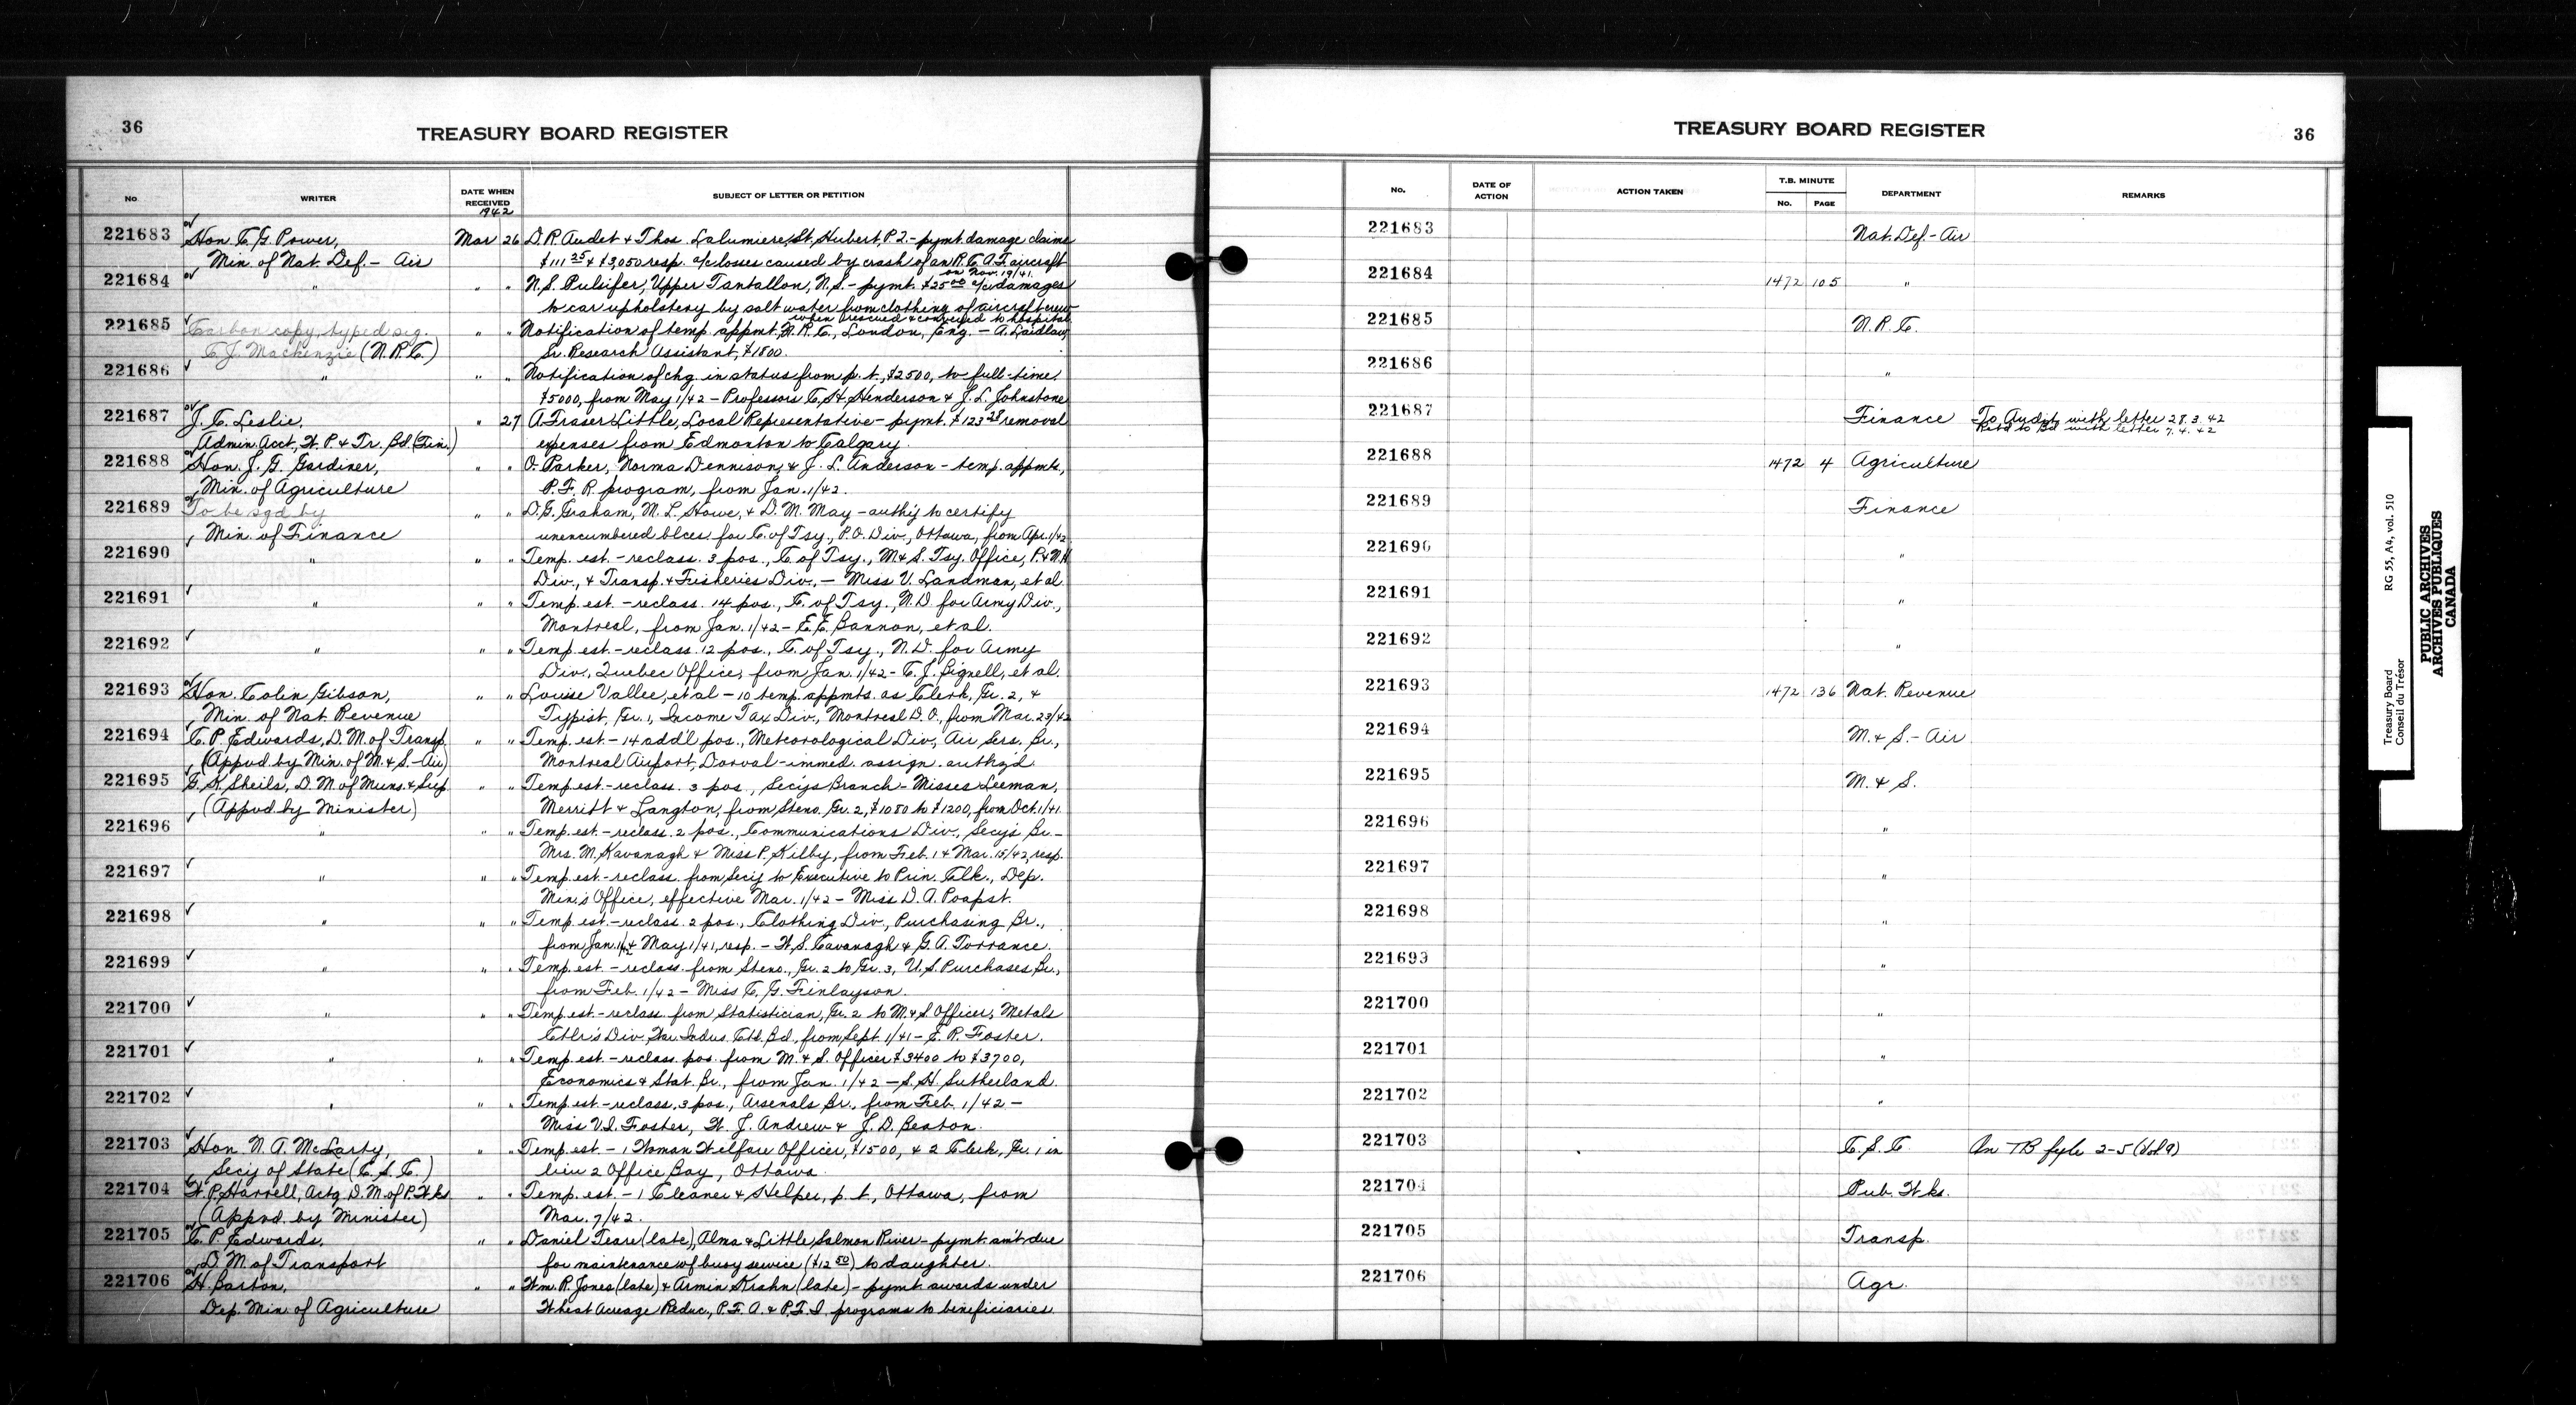 36
TREASURY BOARD REGISTER
No. WRITER DATE WHEN RECEIVED 1942 SUBJECT OF LETTER OR PETITION
221683 Hon. C. G. Power, Mar 26 D. R. Audet & Thos. Lalumiere, St. Hubert, P.Q. - pymt. damage claims
Min. of Nat. Def. - Air $111.25 & $3,050 resp. a/c losses caused by crash of an R.C.A.F. aircraft
on Nov. 19/41.
221684 " " " N. S. Pulsifer, Upper Tantallon, N.S. - pymt. $25.00 a/c damages
to car upholstery by salt water from clothing of aircraft crew
when rescued & conveyed to hospital.
221685 Carbon copy, typed sig. " " Notification of temp. appmt. N.R.C., London, Eng. - A. Laidlaw,
C. J. Mackenzie (N.R.C.) Sr. Research Assistant, $1800.
221686 " " " Notification of chg. in status from p.t., $2500, to full-time
$5000, from May 1/42 - Professors C. H. Henderson & J. L. Johnstone
221687 J. C. Leslie, " 27 A. Fraser Little, Local Representative - pymt. $123.28 removal
Admin. Acct., W. P. & Tr. Bd. (Fin.) expenses from Edmonton to Calgary.
221688 Hon. J. G. Gardiner, " " O. Parker, Norma Dennison, & J. L. Anderson - temp. appmts.,
Min. of Agriculture P.F.R. program, from Jan. 1/42.
221689 To be sgd by " " D. G. Graham, M. L. Howe, & D. M. May - auth'y to certify
Min. of Finance unencumbered blces for C. of Tsy., P.O. Div., Ottawa, from Apr. 1/42
221690 " " " Temp. est. - reclass. 3 pos., C. of Tsy., M. & S. Tsy. Office, P. & N.H.
Div., & Transp. & Fisheries Div., - Miss V. Landman, et al
221691 " " " Temp. est. - reclass. 14 pos., C. of Tsy., N.D. for Army Div.,
Montreal, from Jan. 1/42 - E. E. Bannon, et al.
221692 " " " Temp. est. - reclass. 12 pos., C. of Tsy., N.D. for Army
Div., Quebec Office, from Jan. 1/42 - C. J. Bignell, et al.
221693 Hon. Colin Gibson, " " Louise Vallee, et al - 10 temp. appmts. as Clerk, Gr. 2, &
Min. of Nat. Revenue Typist, Gr. 1, Income Tax Div., Montreal D.O., from Mar. 23/42
221694 C. P. Edwards, D. M. of Transp. " " Temp. est. - 14 add'l pos., Meteorological Div., Air Sers. Br.,
(Appvd. by Min. of M. & S. - Air) Montreal Airport, Dorval - immed. assign. auth'z'd.
221695 G. K. Sheils, D. M. of Muns. & Sup. " " Temp. est. - reclass. 3 pos., Secy's Branch - Misses Leeman,
(Appvd. by Minister) Merritt & Langton, from Steno. Gr. 2, $1080 to $1200, from Oct. 1/41.
221696 " " " Temp. est. - reclass. 2 pos., Communications Div., Secy's Br. -
Mrs. M. Kavanagh & Miss P. Kilby, from Feb. 1 & Mar. 15/42, resp.
221697 " " " Temp. est. - reclass. from Sec'y to Executive to Prin. Clk., Dep.
Min.'s Office, effective Mar. 1/42 - Miss D. A. Poapst.
221698 " " " Temp. est. - reclass. 2 pos., Clothing Div., Purchasing Br.,
from Jan. 1/42 & May 1/41, resp. - W. S. Cavanagh & G. A. Torrance.
221699 " " " Temp. est. - reclass. from Steno., Gr. 2 to Gr. 3, U.S. Purchases Br.,
from Feb. 1/42 - Miss C. G. Finlayson.
221700 " " " Temp. est. - reclass. from Statistician, Gr. 2 to M. & S. Officer, Metals
Ctlr's Div., War Indus. Ctl. Bd., from Sept. 1/41 - E. R. Foster.
221701 " " " Temp. est. - reclass. pos. from M. & S. Officer $3400 to $3700,
Economics & Stat. Br., from Jan. 1/42 - S. H. Sutherland.
221702 " " " Temp. est. - reclass. 3 pos., Arsenals Br., from Feb. 1/42 -
Miss V. I. Foster, W. J. Andrew & J. D. Beaton.
221703 Hon. N. A. McLarty, " " Temp. est. - 1 Woman Welfare Officer, $1500, & 2 Clerk, Gr. 1 in
Sec'y of State (C.S.C.) lieu 2 Office Boy, Ottawa.
221704 W. P. Harrell, Actg. D. M. of P. Wks " " Temp. est. - 1 Cleaner & Helper, p.t., Ottawa, from
(Appvd. by Minister) Mar. 7/42.
221705 C. P. Edwards, " " Daniel Teare (late), Alma & Little Salmon River - pymt. am't due
D. M. of Transport for maintenance of buoy service ($12.50) to daughter.
221706 H. Barton, " " Wm. R. Jones (late) & Armin Krahn (late) - pymt. awards under
Dep. Min. of Agriculture Wheat Acreage Reduc., P.F.A. & P.F.I. programs to beneficiaries.
TREASURY BOARD REGISTER
36
No. DATE OF ACTION ACTION TAKEN T.B. MINUTE No. PAGE DEPARTMENT REMARKS
221683 Nat. Def. - Air
221684 1472 105 "
221685 N.R.C.
221686 "
221687 Finance To Audit with letter 28.3.42
Retd to Bd with letter 7.4.42
221688 1472 4 Agriculture
221689 Finance
221690 "
221691 "
221692 "
221693 1472 136 Nat. Revenue
221694 M. & S. - Air
221695 M. & S.
221696 "
221697 "
221698 "
221699 "
221700 "
221701 "
221702 "
221703 C.S.C. On TB fyle 2-5 (Vol 9)
221704 Pub. Wks.
221705 Transp.
221706 Agr.
Treasury Board
Conseil du Trésor
RG 55, A4, vol. 510
PUBLIC ARCHIVES
ARCHIVES PUBLIQUES
CANADA